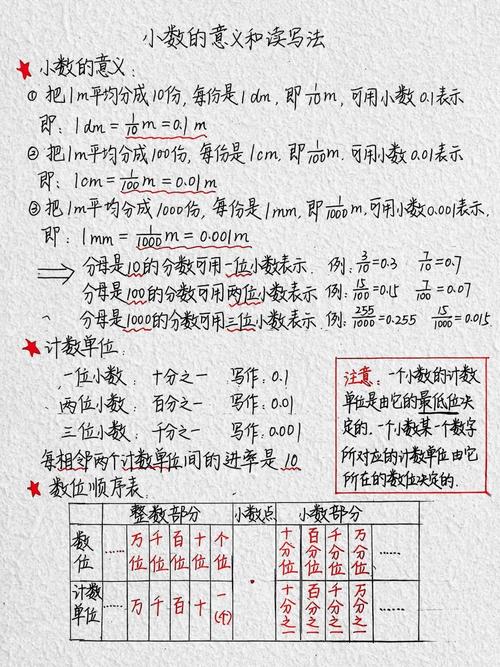 小数的意义和读写法
★ 小数的意义:
① 把1m平均分成10份,每份是1dm,即1/10m,可用小数0.1表示
即: 1dm=1/10m=0.1m
② 把1m平均分成100份,每份是1cm.即1/100m.可用小数0.01表示
即: 1cm=1/100m=0.01m
③ 把1m平均分成1000份,每份是1mm,即1/1000m,可用小数0.001表示,
即: 1mm=1/1000m=0.001m
⇒ 分母是10的分数可用一位小数表示. 例: 3/10=0.3 7/10=0.7
分母是100的分数可用两位小数表示. 例: 15/100=0.15 7/100=0.07
分母是1000的分数可用三位小数表示. 例: 255/1000=0.255 15/1000=0.015
★ 计数单位:
一位小数: 十分之一 写作:0.1
两位小数: 百分之一 写作:0.01
三位小数: 千分之一 写作:0.001
每相邻两个计数单位间的进率是10
注意:一个小数的计数
单位是由它的最低位决
定的.一个小数某一个数字
所对应的计数单位由它
所在的数位决定的.
★ 数位顺序表:
整数部分 小数点 小数部分
数位 …… 万位 千位 百位 十位 个位 · 十分位 百分位 千分位 万分位 ……
计数单位 …… 万 千 百 十 一(个) 十分之一 百分之一 千分之一 万分之一 ……